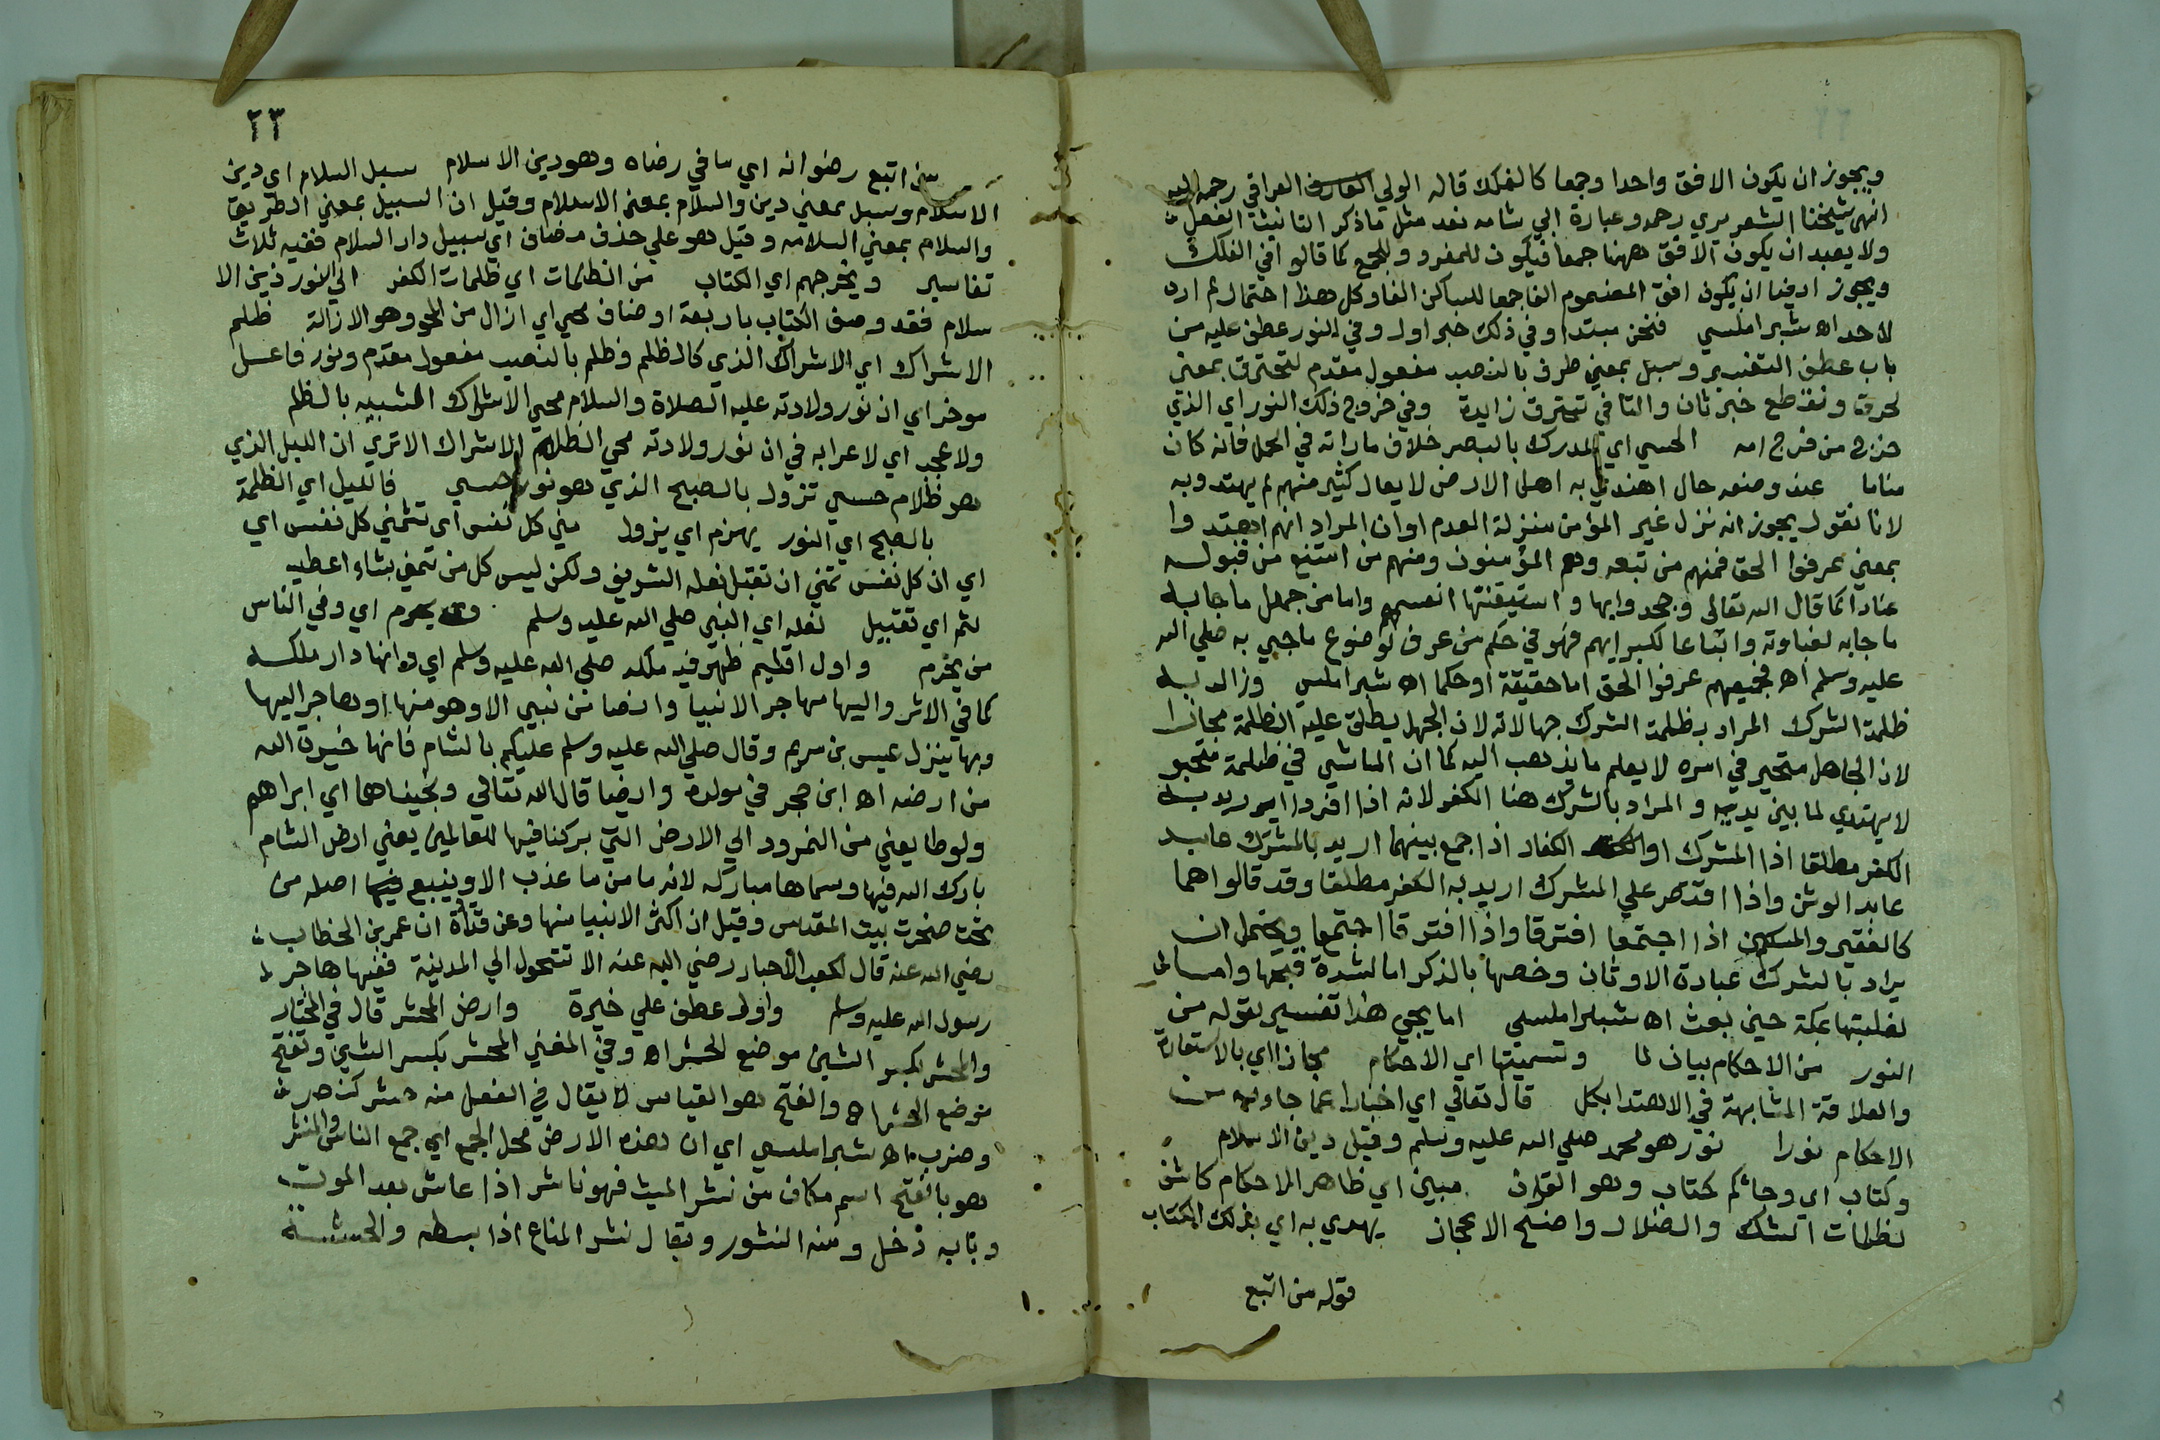 ويجوز ان يكون الافق واحدا وجمعا كالفلك قاله الولي العراقي رحمه الله
انتهى شيخنا الشعريري رحمه وعبارة ابي شامه نعد مثل ماذكر التانيث الفعل
ولا يبعد ان يكون الافق ههنا جمعا فيكون للمفرد وللجمع كما قالوا في الفلك
ويجوز ايضا ان يكون افق المضموم الفا جمعا للساكن الفا وكل هذا احتمال لم اره
لاحد اه شبراملسي فنحن مبتدا وفي ذلك خبر اول وفي النور عطف عليه من
باب عطف التفسير وسبل بمعني طرف بالنصب مفعول مقدم لتخترق بمعني
لحرق ونقطع خبر ثان والتا في تخترق زايدة وفي خروج ذلك النور اي الذي
خرج من فرج امه الحسي اي المدرك بالبصر خلاف ماراته في الحمل فانه كان
مناما عند وضعه حال اهتدي به اهل الارض لا يقال كثير منهم لم يهتد وبه
لانا نقول يجوز انه نزل غير المؤمن منزلة العدم او ان المراد انهم اهتد وا
بمعني عرفوا الحق فمنهم من تبعه وهم المؤمنون ومنهم من امتنع من قبوله
عنادا كما قال الله تعالى وجحدوا بها واستيقنتها انفسهم واما من جهل ماجا به
ماجا به لغباوته واتباعا لكبرايهم فهو في حكم من عرف لوضوع ماجي به صلي الله
عليه وسلم اه فجميعهم عرفوا الحق اما حقيقة او حكما اه شبراملسي وزالت به
ظلمة الشرك المراد بظلمة الشرك جهالاته لان الجهل يطلق عليه الظلمة مجازا
لان الجاهل متحير في امره لا يعلم ما يذهب اليه كما ان الماشي في ظلمة متحير
لا يهتدي لما بين يديه والمراد بالشرك هنا الكفر لانه اذا افردا اريد به
الكفر مطلقا اذا المشرك او الكفار اذا جمع بينهما اريد بالمشرك عابد
عابد الوثن واذا اقتصر علي المشرك اريد به الكفر مطلقا وقد قالوا هما
كالفقير والمسكين اذا اجتمعا افترقا واذا افترقا اجتمعا ويحتمل ان
يراد بالشرك عبادة الاوثان وخصها بالذكر اما لشدة قبحها واما
لغلبتها بمكة حين بعث اه شبراملسي اما يجي هذا تفسير لقوله من
النور من الاحكام بيان لما وتسميتها اي الاحكام مجازا اي بالاستعارة
والعلاقة المشابهة في الاهتدا بكل قال تعالي اي اخبارا عما جاء به من
الاحكام نورا نور هو محمد صلي الله عليه وسلم وقيل دين الاسلام
وكتاب اي وجائكم كتاب وهو القران مبين اي ظاهر الاحكام كاشف
لظلمات الشك والضلال واضح الاعجاز يهدي به اي بذلك الكتاب
قوله من اتبع
٢٣
من اتبع رضوانه اي ما في رضاه وهو دين الاسلام سبل السلام اي دين
الاسلام وسبل بمعني دين والسلام بمعني الاسلام وقيل ان السبيل بمعني الطريق
والسلام بمعني السلامه وقيل هو علي حذف مضاف اي سبيل دار السلام ففيه ثلاث
تفاسير ويخرجهم اي الكتاب من الظلمات اي ظلمات الكفر الي النور دين الا
سلام فقد وصف الكتاب باربعة اوصاف محي اي ازال من المحو وهو الازالة ظلم
الاشراك اي الاشراك الذي كالظلم وظلم بالنصب مفعول مقدم ونور فاعل
موخر اي ان نور ولادته عليه الصلاة والسلام محي الاشراك المشبيه بالظلم
ولا عجب اي لا غرابه في ان نور ولادته محي الظلام الاشراك الا تري ان الليل الذي
هو ظلام حسي تزول بالصبح الذي هو نور حسي فالليل اي الظلمة
بالصبح اي النور يهزم اي يزول مني كل نفس اي تتمني كل نفس اي
اي ان كل نفس تمني ان تقبل نعله الشريف ولكن ليس كل من تمني بشاء اعطيه
لثم اي تقبيل نعله اي النبي صلي الله عليه وسلم يحرم اي وفي الناس
من يحرم واول اقليم ظهر فيه ملكه صلي الله عليه وسلم اي وانها دار ملكه
كما في الاثر واليها مهاجر الانبيا وايضا من نبي الا وهو منها او هاجر اليها
وبها ينزل عيسي بن مريم وقال صلي الله عليه وسلم عليكم بالشام فانها خيرة الله
من ارضه اه ابن حجر في مولده وايضا قال الله تعالي ونجيناهما اي ابراهيم
ولوطا يعني من النمرود الي الارض التي بركنا فيها للعالمين يعني ارض الشام
بارك الله فيها وسماها مباركه لانه ما من ما عذب الا وينبع اصله من
تحت صخرت بيت المقدس وقيل ان اكثر الانبيا منها وعن قتادة ان عمر بن الخطاب
رضي الله عنه قال لكعب الاحبار رضي الله عنه الا تتحول الي المدينة ففيها هاجر
رسول الله عليه وسلم واول عطف علي خيرة وارض المحشر قال في المختار
والمحشر بكسر الشين موضع الحشر اه وفي المغني المحشر بكسر الشين وتفتح
موضع الحشر اه والفتح هو القياس لا يقال في الفعل منه حشر كنصر
وضرب اه شبراملسي اي ان هذه الارض محل الجمع اي جمع الناس والمنشر
هو بالفتح اسم مكان من نشر الميت فهو ناشر اذا عاش بعد الموت
وبابه دخل ومنه النشور ويقال نشر المتاع اذا بسطه